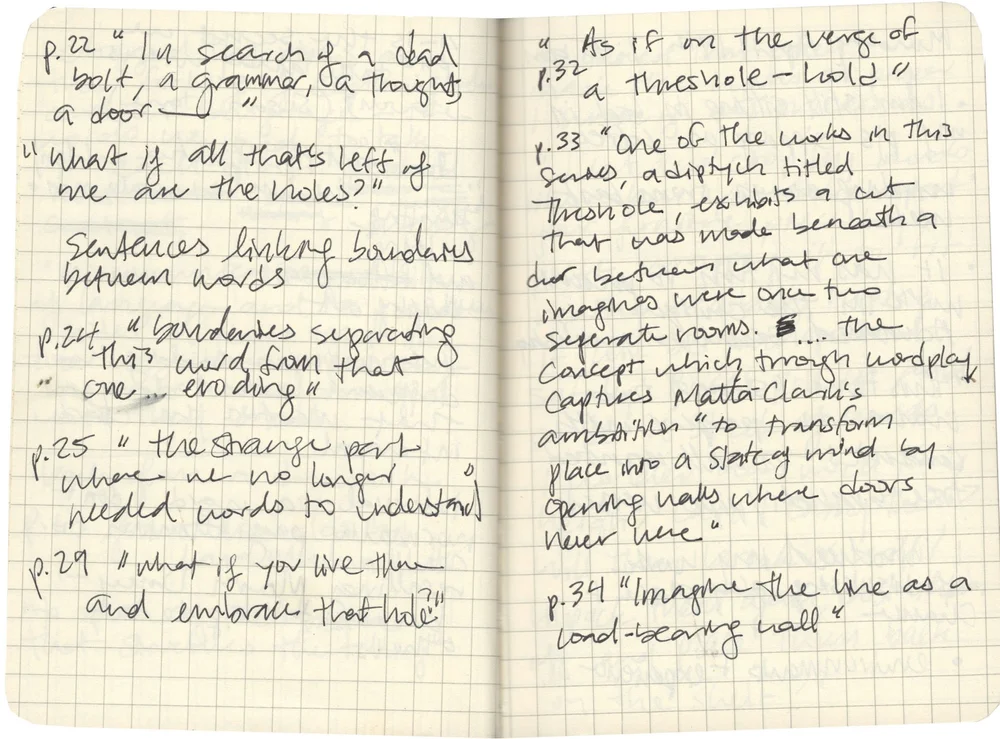 p.22 " In search of a dead
bolt, a grammar, a thought,
a door— "
"What if all that's left of
me are the holes?"
Sentences linking boundaries
between words
p.24 " boundaries separating
this word from that
one ... eroding "
p.25 " the strange part
where we no longer
needed words to understand"
p.29 "what if you live there
and embrace that hole?"
" As if on the verge of
p.32 a threshole-hold "
p.33 "One of the works in this
series, a diptych titled
Threshole, exhibits a cut
that was made beneath a
door between what one
imagines were once two
seperate rooms. .... the
concept which through wordplay
captures Matta-Clark's
ambition "to transform
place into a state of mind by
opening walls where doors
never were"
p.34 "Imagine the line as a
load-bearing wall"